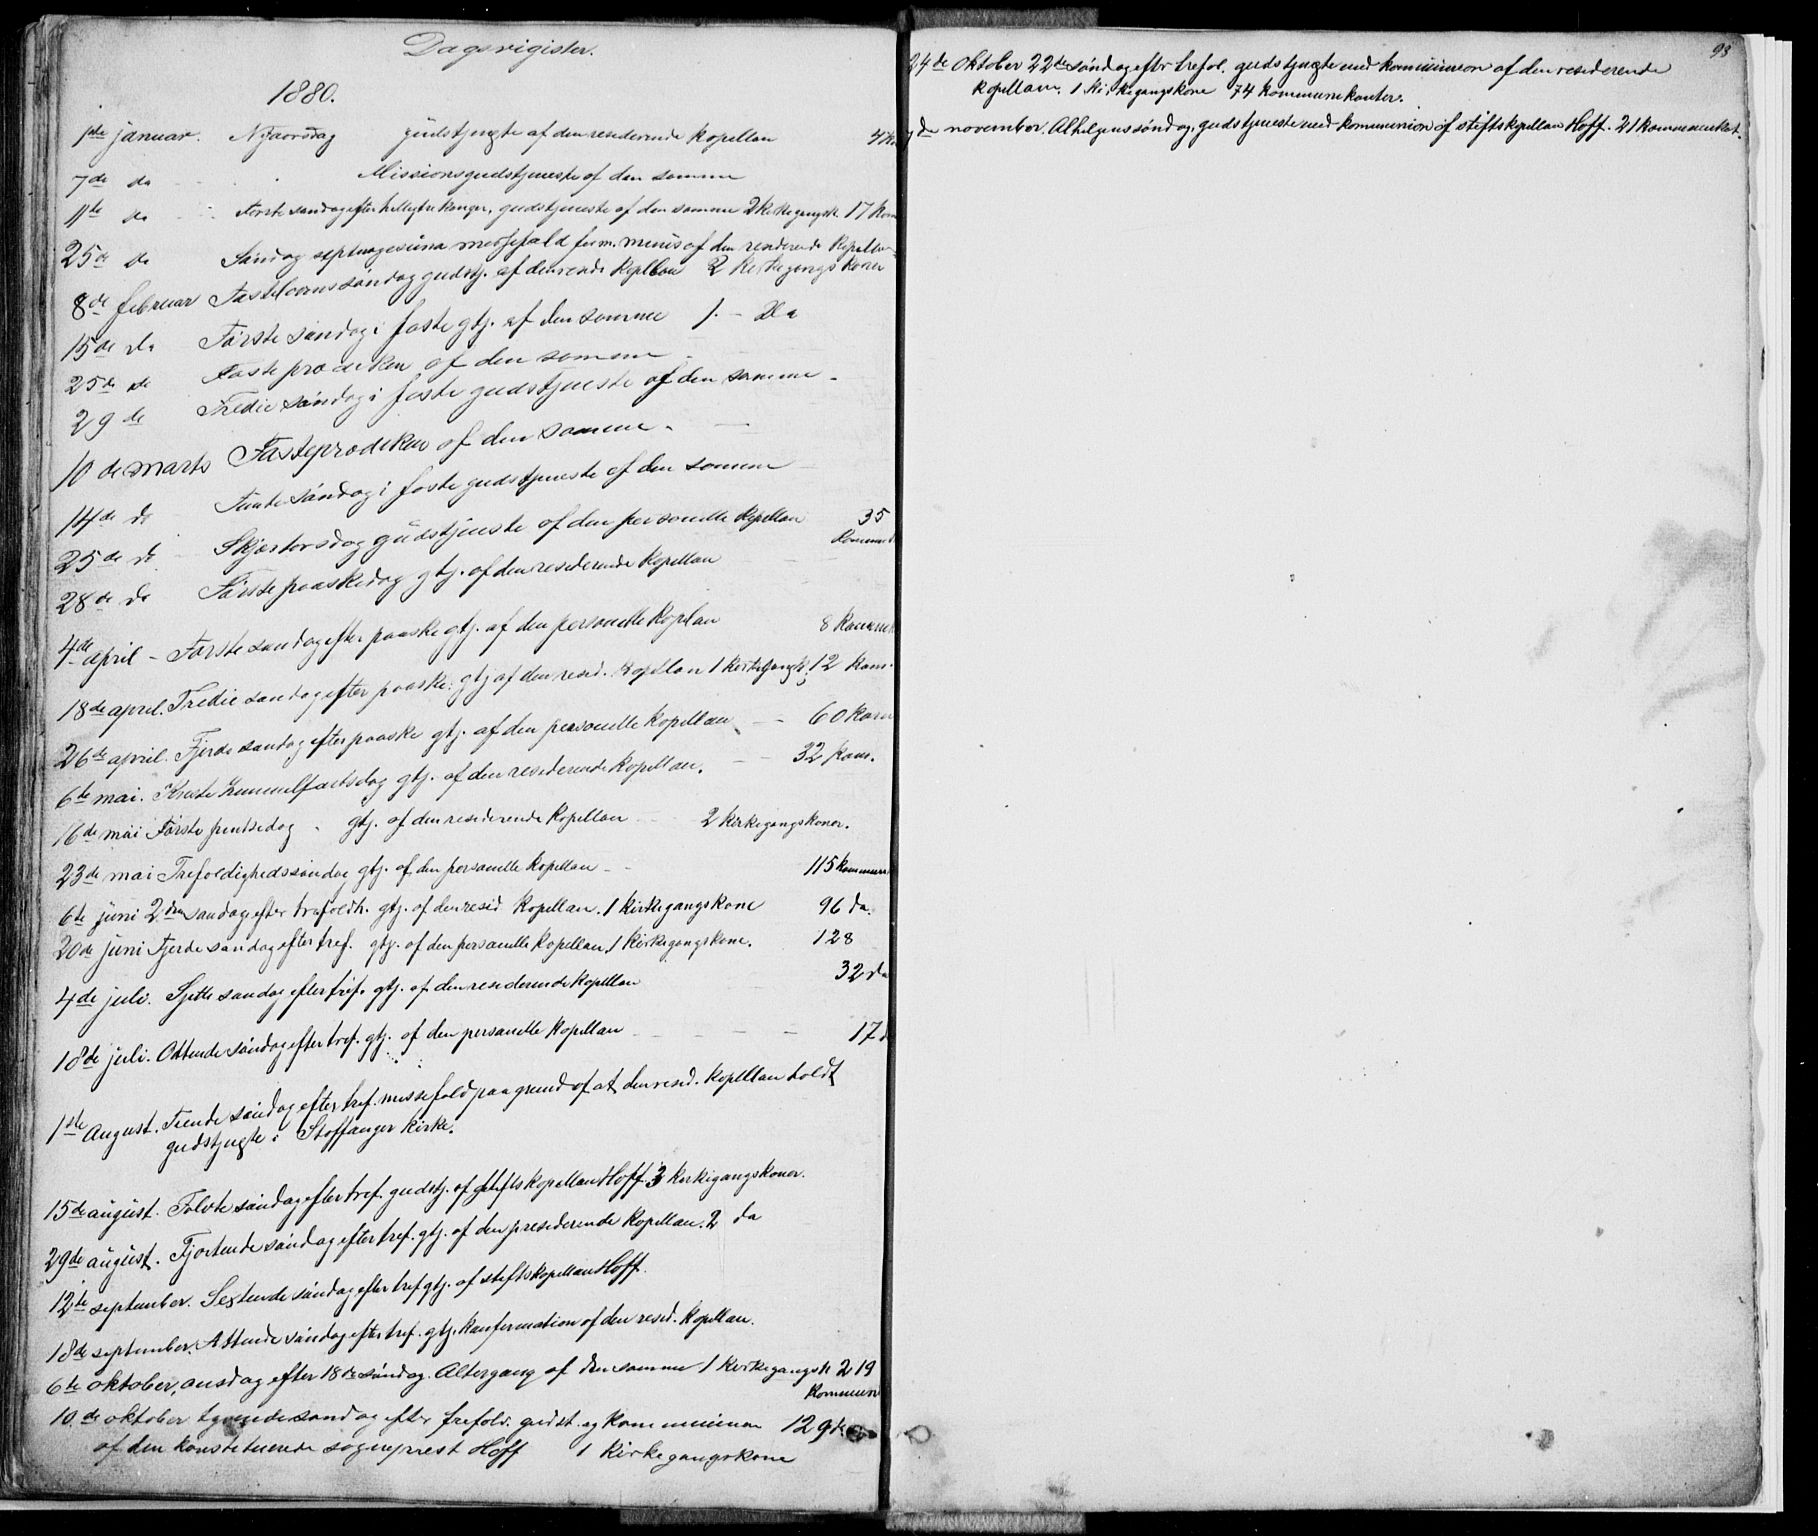 Dagsrigister.
1880.
1ste januar. Nytaarsdag gudstjngte af den residerende kapellan 4 ko
7de do - - . Missionsgudstjeneste af den samme
11te do - Første søndag efter helligtrekonger, gudstjeneste af den samme 2 kirkegangsk. 17 kom
25de do Søndag septuagesima messefald form. menis af den residerende kapellan
8de februar Fastelavnssøndag gudstj. af den resid. kapellan 2 kirkegangskoner
15de do Første søndag i faste gtj. af den samme 1. - Do
25de do Fasteprædiken af den samme -
29de Tredie søndag i faste gudstjeneste af den samme -
10de marts Fasteprædiken af den samme. -
14de do Femte søndag i faste gudstjeneste af den samme -
25de do Skjærtorsdag gudstjeneste af den personelle kapellan 35
kommuni
28de do Første paaskedag gtj. af den residerende kapellan
4de april - Første søndag efter paaske gtj. af den personelle kaplan 8 kommuni
18de april. Tredie søndag efter paaske. gtj af den resid. kapellan 1 kirkegangsk. 12 kom.
26de april. Fjerde søndag efter paaske gtj. af den personelle kapellan - - 60 kom
6te mai. Kriste himmelfartsdag gtj. af den residerende kapellan. - - 32 kom.
16de mai Første pintsedag . gtj. af den residerende kapellan - - 2 kirkegangskoner.
23de mai Trefoldighedssøndag gtj. af den personelle kapellan - - 115 kommun
6te juni 2den søndag efter trefoldh. gtj. af den resid kapellan. 1 kirkegangskone 96 do.
20de juni Fjerde søndag efter tref. gtj. af den personelle kapellan. 1 kirkegangskone. 128
4de juli. Sjette søndag efter tref. gtj. af den residerende kapellan 32 do
18de juli. Ottende søndag efter tref. gtj. af den personelle kapellan - - - - 17 d
1ste August. Tiende søndag efter tref. messefald paa grund af at den resid. kapellan holdt
gudstjngte i Stoffanger kirke.
15de august. Tolvte søndag efter tref. gudstj. af stiftskapellan Hoff. 3 kirkegangskoner.
29de august. Fjortende søndag efter tref. gtj. af den presiderende kapellan. 2 do
12te september. Sextende søndag efter tref gtj. af stiftskapellan Hoff.
18de september. Attende søndag efter tref. gtj. konfirmation af den resid. kapellan.
6te oktober, onsdag efter 18de søndag. Altergang af den samme 1 kirkegangsk 219
kommun
10.de oktober tyvende søndag efter trefold. gudst. og kommunion 129 do
af den konstituerende sogneprest Hoff 1 kirkegangskone
93
24de oktober 22de søndag eftr trefol. gudstjngte med kommunion af den residerende
kapellan. 1 kirkegangskone 74 kommunikanter.
7de november. Alhelgenssøndag, gudstjeneste med kommunion af stiftskapellan Hoff. 21 kommunikat.